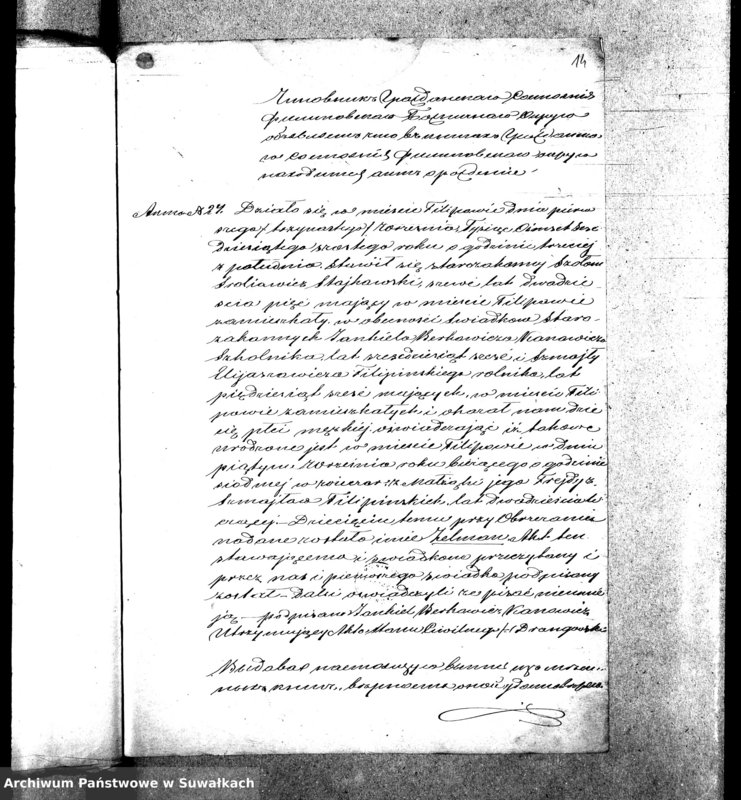 14
Чиновникъ Гражданскаго Состоянія
Филиповскаго Божничнаго Округа
объявляетъ что въ книгахъ Гражданска-
го состоянія Филиповскаго округа
находится актъ о рожденіи
Anno № 27. Działo się w mieście Filipowie dnia pierw
szego /trzynastego/ Września Tysiąc Ośmset Sześ
dziesiątego szóstego roku o godzinie trzeciej
z południa. Stawił się starozakonny Szolom
Stajkowski, szewc lat dwadzie
ścia pięć mający w mieście Filipowie
zamieszkały, w obecności Świadków Staro-
zakonnych Jankiela Berkowicza Kanowicza
Szkolnika, lat sześćdziesiąt sześć i Szmojły
Eliaszewicza Filipinskiego rolnika, lat
pięćdziesiąt sześć mających, w mieście Fili
powie zamieszkałych i okazał nam dzie
cię płci męzkiej oświadczając iż takowe
urodzone jest w mieście Filipowie w dniu
piątym Września roku bieżącego o godzinie
siódmej w wieczor z Małżonki jego Frejdy z
Szmojłow Filipinskich, lat dwadzieścia
mającej. Dziecięciu temu przy Obrzezaniu
nadane zostało imie Zelman. Akt ten
stawającemu i świadkom przeczytany i
przez nas i pierwszego świadka podpisany
został. Dalsi oświadczyli że pisać nieumie
ją. podpisano Jankiel Berkowicz Kanowicz
Utrzymujący Akta Stanu Cywilnego /-/ Drangowski
Выдавая настоящую выпись изъ
книгъ, верность оной удостоверяю.
Archiwum Państwowe w Suwałkach